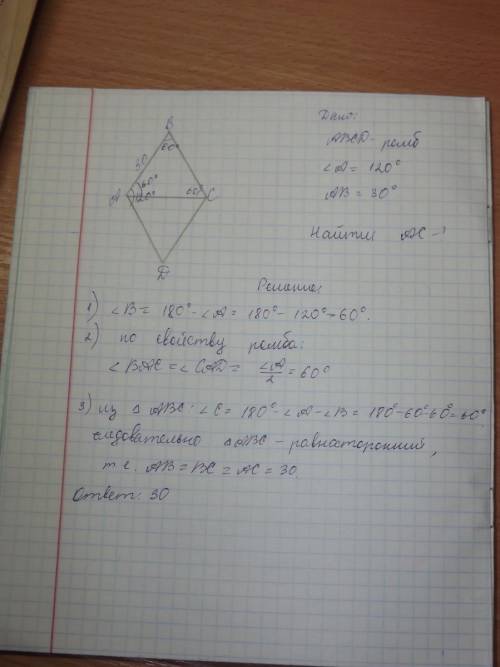 B
60°
30
A
60°
120°
60°
C
D
Дано:
ABCD - ромб
∠A = 120°
AB = 30°
Найти AC - ?
Решение:
1) ∠B = 180° - ∠A = 180° - 120° = 60°.
2) по свойству ромба:
∠BAC = ∠CAD = ∠A/2 = 60°
3) Из △ABC: ∠C = 180° - ∠A - ∠B = 180° - 60° - 60° = 60°
следовательно △ABC - равносторонний,
т.е. AB = BC = AC = 30.
Ответ: 30